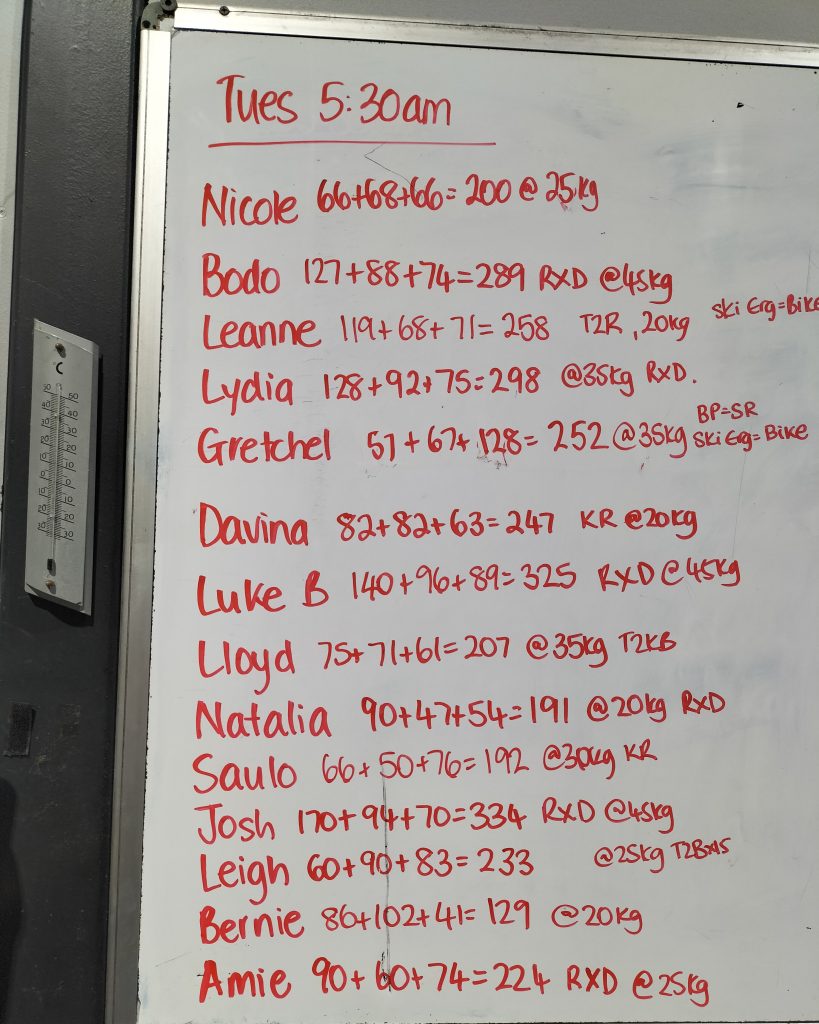 Tues 5:30am
Nicole 66+68+66=200 @ 25kg
Bodo 127+88+74=289 RXD @45kg
Leanne 119+68+71=258 T2R, 20kg Ski Erg=Bike
Lydia 128+92+75=298 @35kg RXD.
Gretchel 57+67+128=252 @35kg BP=SR Ski Erg=Bike
Davina 82+82+63=247 KR @20kg
Luke B 140+96+89=325 RXD @45kg
Lloyd 75+71+61=207 @35kg T2KB
Natalia 90+47+54=191 @20kg RXD
Saulo 66+50+76=192 @30kg KR
Josh 170+94+70=334 RXD @45kg
Leigh 60+90+83=233 @25kg
Bernie 86+102+41=129 @20kg
Amie 90+60+74=224 RXD @25kg
°C
50 40 30 20 10 0 10 20 30